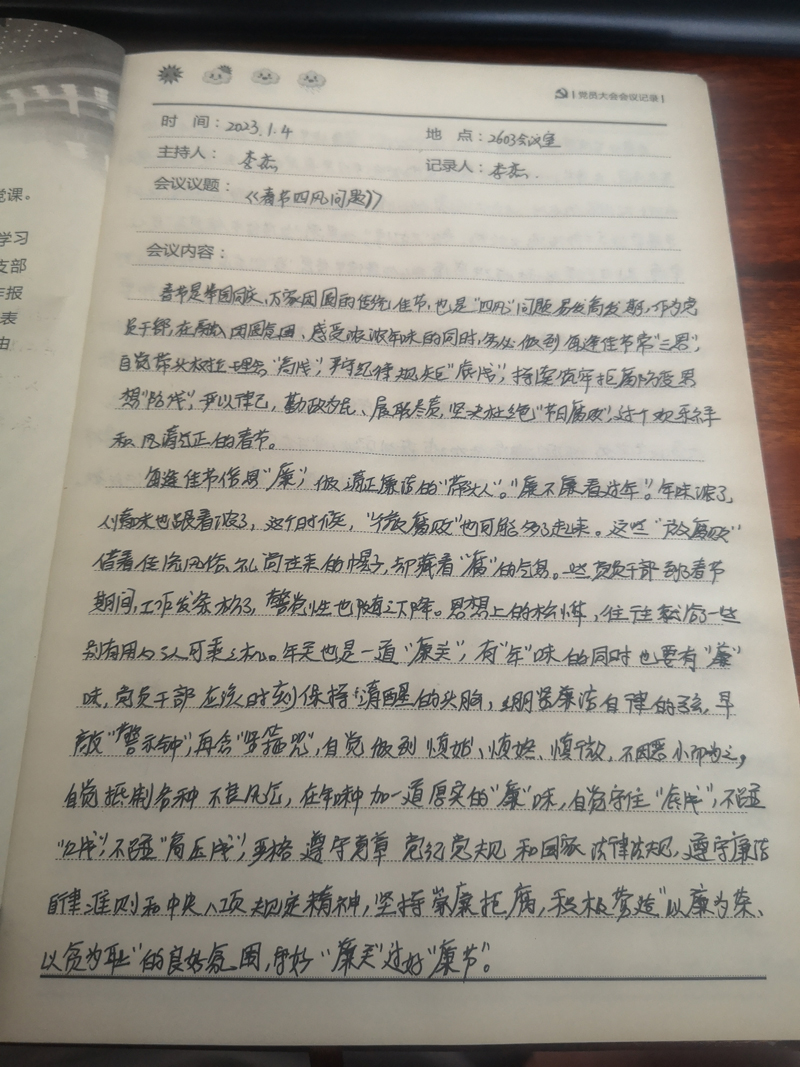 党课。
学习
支部
年报
表
由
党员大会会议记录
时 间：2023.1.4 地 点：2603会议室
主持人：李杰 记录人：李杰.
会议议题：《春节四风问题》
会议内容：
春节是举国同庆、万家团圆的传统佳节，也是"四风"问题易发高发期，作为党
员干部，在融入团圆氛围、感受浓浓年味的同时，务必做到每逢佳节常"三思"，
自觉带头树立理念"高线"，严守纪律规矩"底线"，持续筑牢拒腐防变思
想"防线"，严以律己，勤政为民、履职尽责，坚决杜绝"节日腐败"，过个欢乐祥
和风清气正的春节。
每逢佳节倍思"廉"，做清正廉洁的"带头人"。"廉不廉看过年"。年味浓了，
人情味也跟着浓了，这个时候，"微腐败"也可能多了起来。这些"微腐败"
借着传统风俗、礼尚往来的幌子，却藏着"腐"的气息。一些党员干部到了春节
期间，工作发条松了，警觉性也随之下降。思想上的松懈，往往就给一些
别有用心之人可乘之机。年关也是一道"廉关"，有"年"味的同时也要有"廉"
味，党员干部应该时刻保持清醒的头脑，绷紧廉洁自律的弦，早
敲"警示钟"，再念"紧箍咒"，自觉做到慎始、慎终、慎微，不因恶小而为之，
自觉抵制各种不良风气，在年味中加一道厚实的"廉"味，自觉守住"底线"，不踩
"红线"，不碰"高压线"，严格遵守党章党纪党规和国家法律法规，遵守廉洁
自律准则和中央八项规定精神，坚持崇廉拒腐，积极营造"以廉为荣、
以贪为耻"的良好氛围，守好"廉关"过好"廉节"。